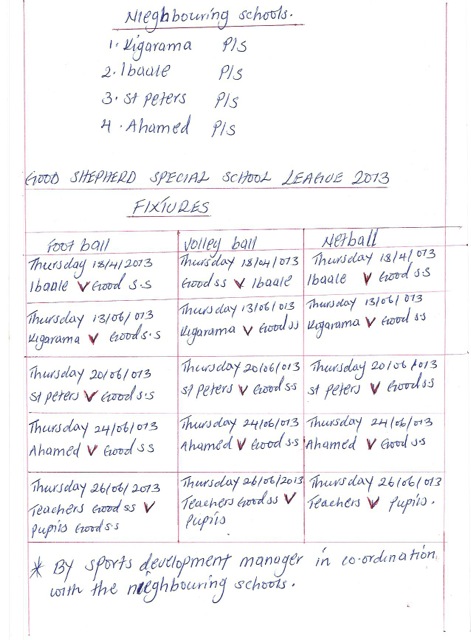 Nieghbouring schools.
1. Kigarama P/S
2. Ibaale P/S
3. St Peters P/S
4. Ahamed P/S
GOOD SHEPHERD SPECIAL SCHOOL LEAGUE 2013
FIXTURES
Foot ball Volley ball Netball
Thursday 18/4/2013 Thursday 18/04/013 Thursday 18/4/013
Ibaale V Good S.S Good SS V Ibaale Ibaale V Good SS
Thursday 13/06/013 Thursday 13/06/013 Thursday 13/06/013
Kigarama V Good S.S Kigarama V Good SS Kigarama V Good SS
Thursday 20/06/013 Thursday 20/06/013 Thursday 20/06/013
St Peters V Good SS St Peters V Good SS St Peters V Good SS
Thursday 24/06/013 Thursday 24/06/013 Thursday 24/06/013
Ahamed V Good SS Ahamed V Good S.S Ahamed V Good SS
Thursday 26/06/2013 Thursday 26/06/2013 Thursday 26/06/013
Teachers Good SS V Teachers Good SS V Teachers V Pupils.
Pupils Good S.S Pupils
* By sports development manager in co-ordination
with the nieghbouring schools.